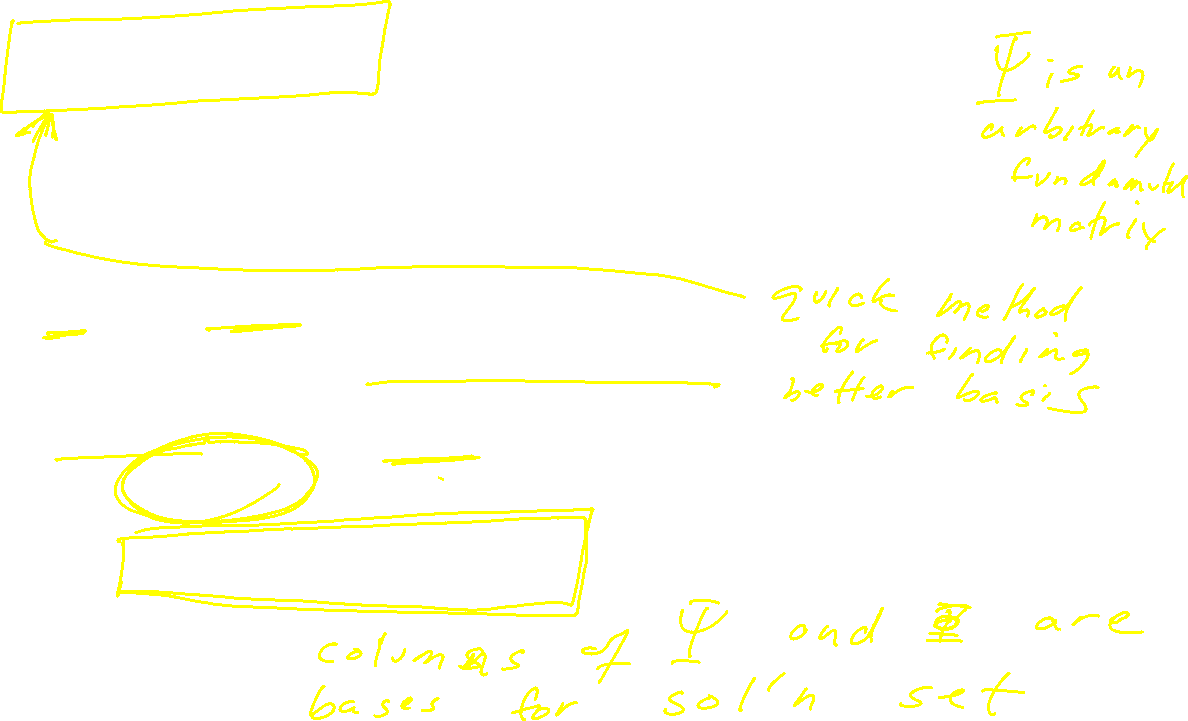 Ψ is an
arbitrary
fundamental
matrix
quick method
for finding
better basis
columns of Ψ and are
bases for sol'n set